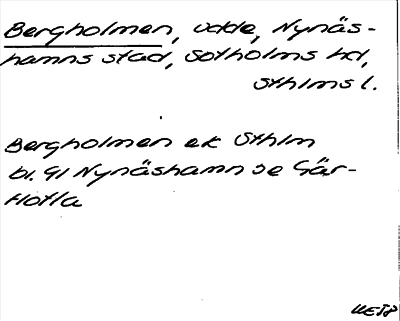 Bergholmen, udde, Nynäs-
hamns stad, Sotholms hd,
Sthlms l.
Bergholmen ek Sthlm
bl. 91 Nynäshamn se Gär-